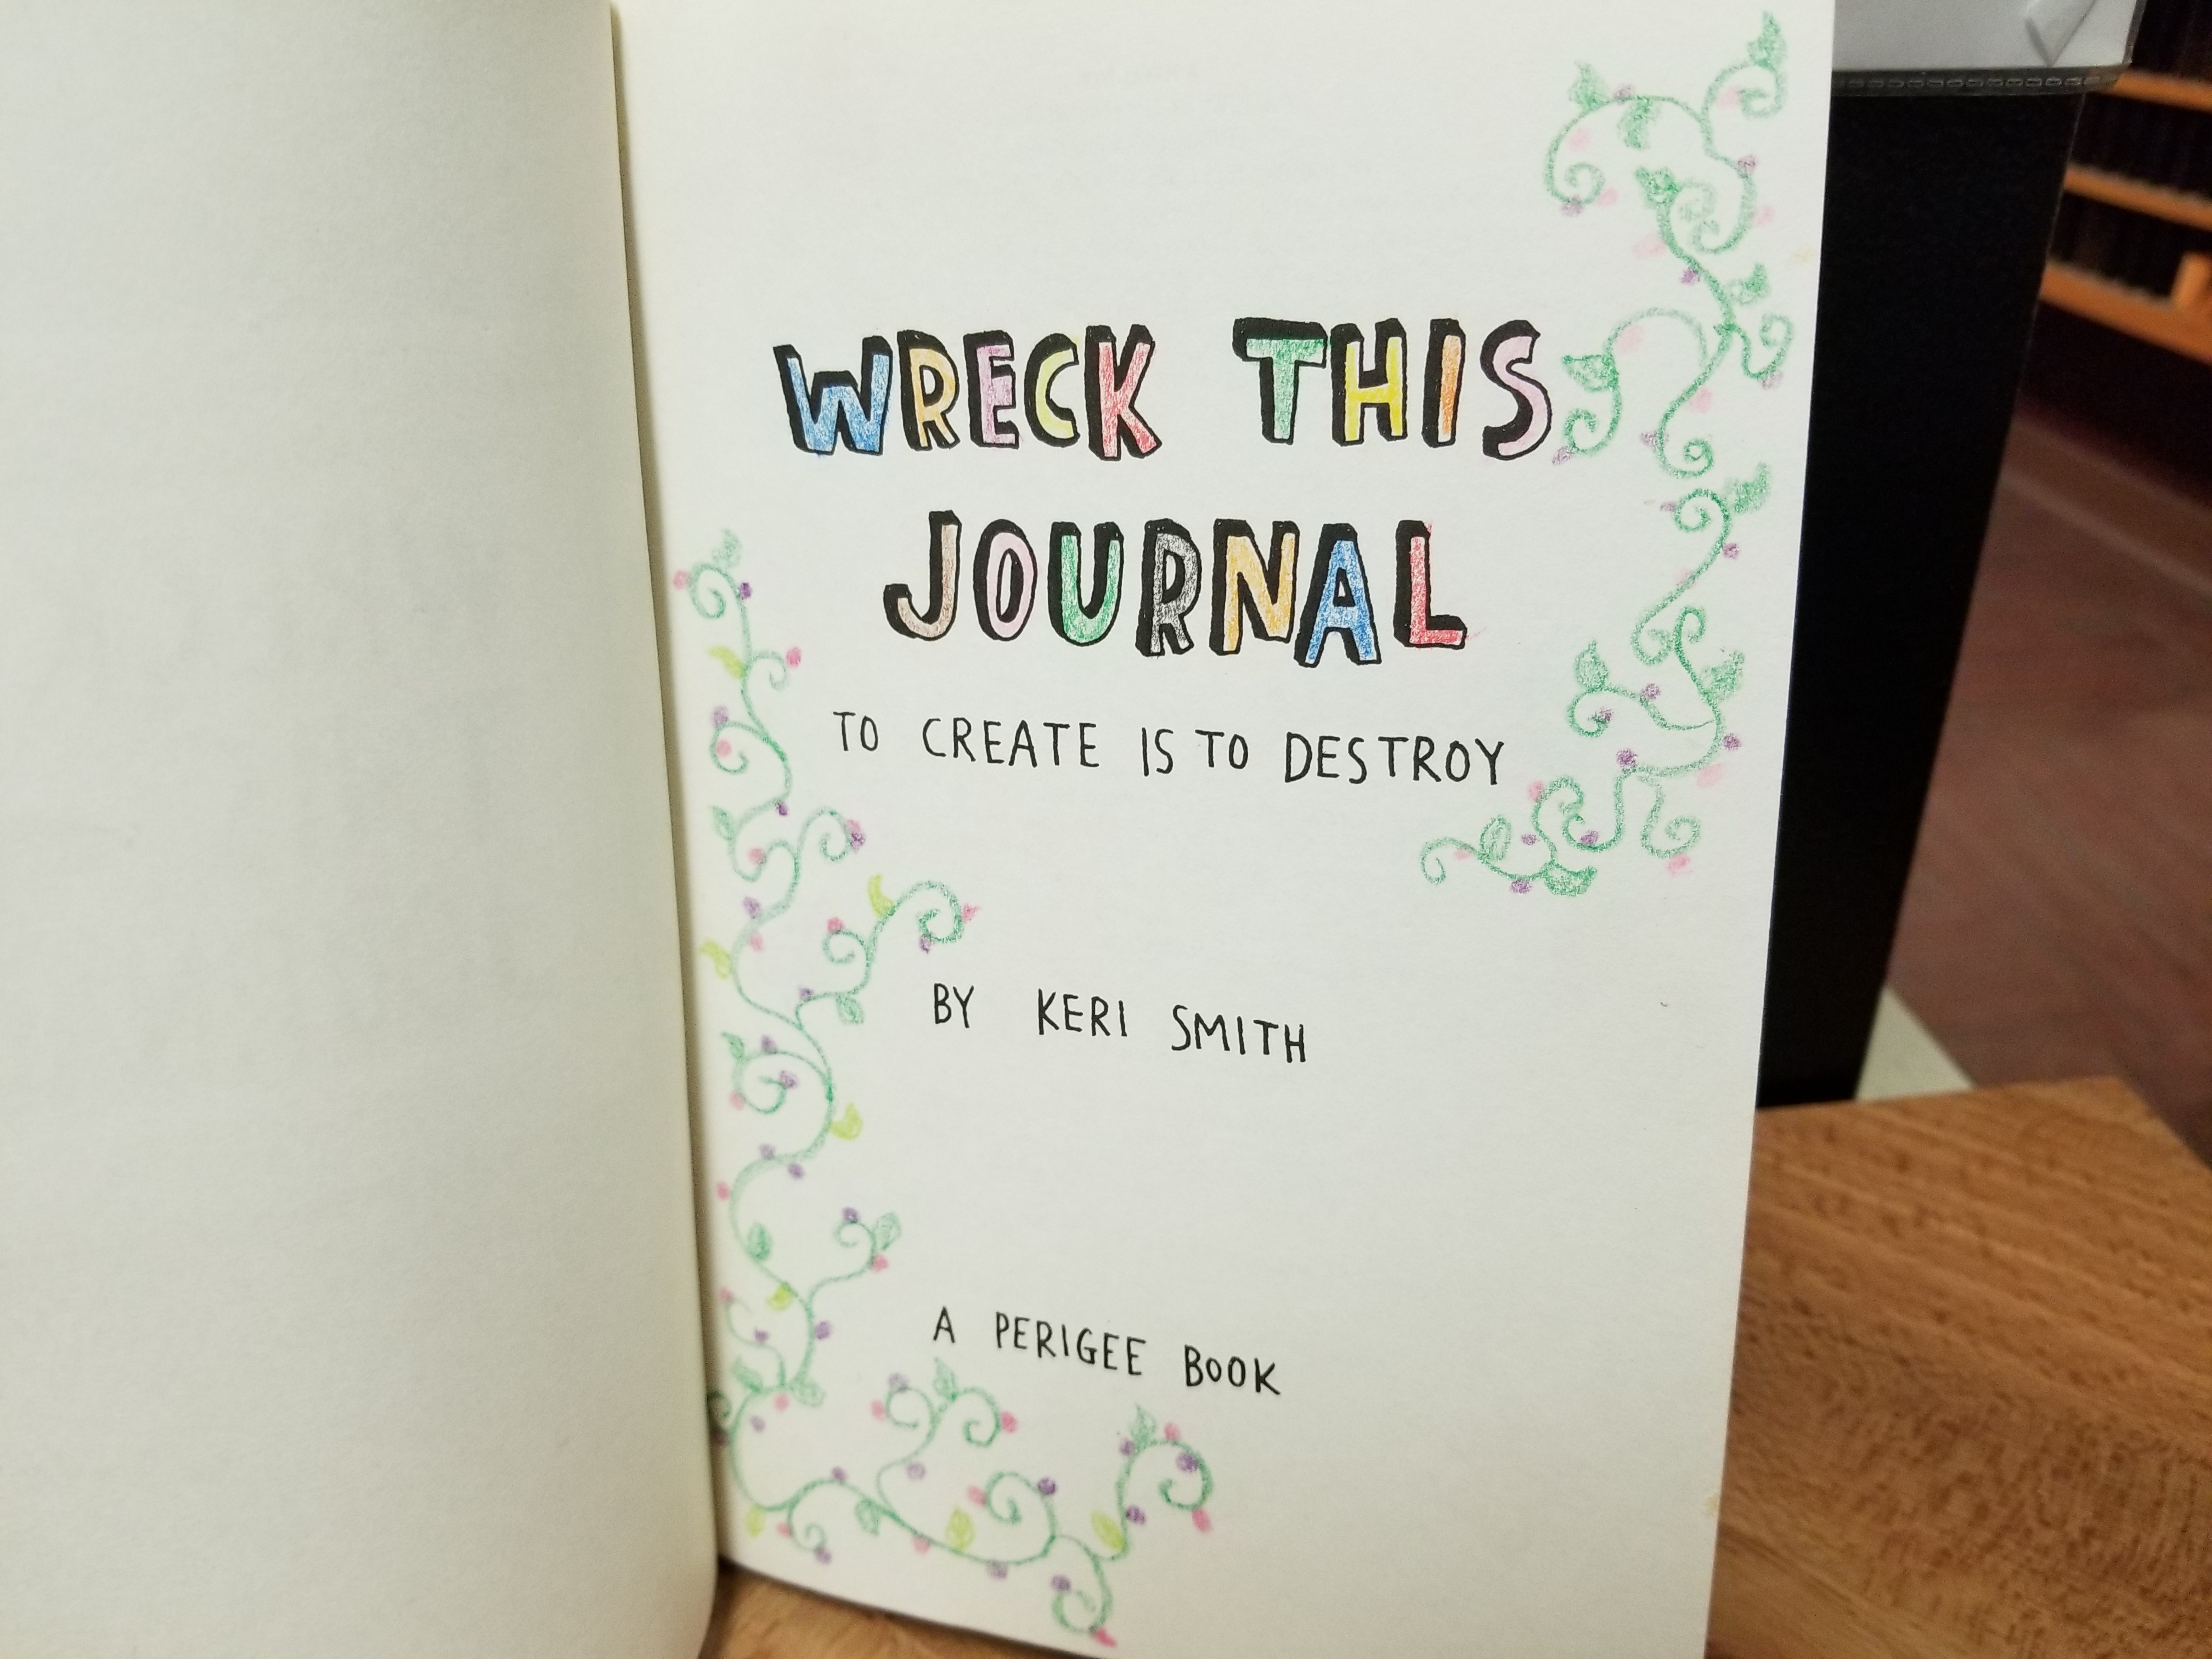 WRECK THIS
JOURNAL
TO CREATE IS TO DESTROY
BY KERI SMITH
A PERIGEE BOOK